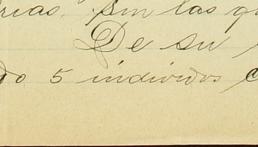 rias. Sin las qu
De su
do 5 individos c